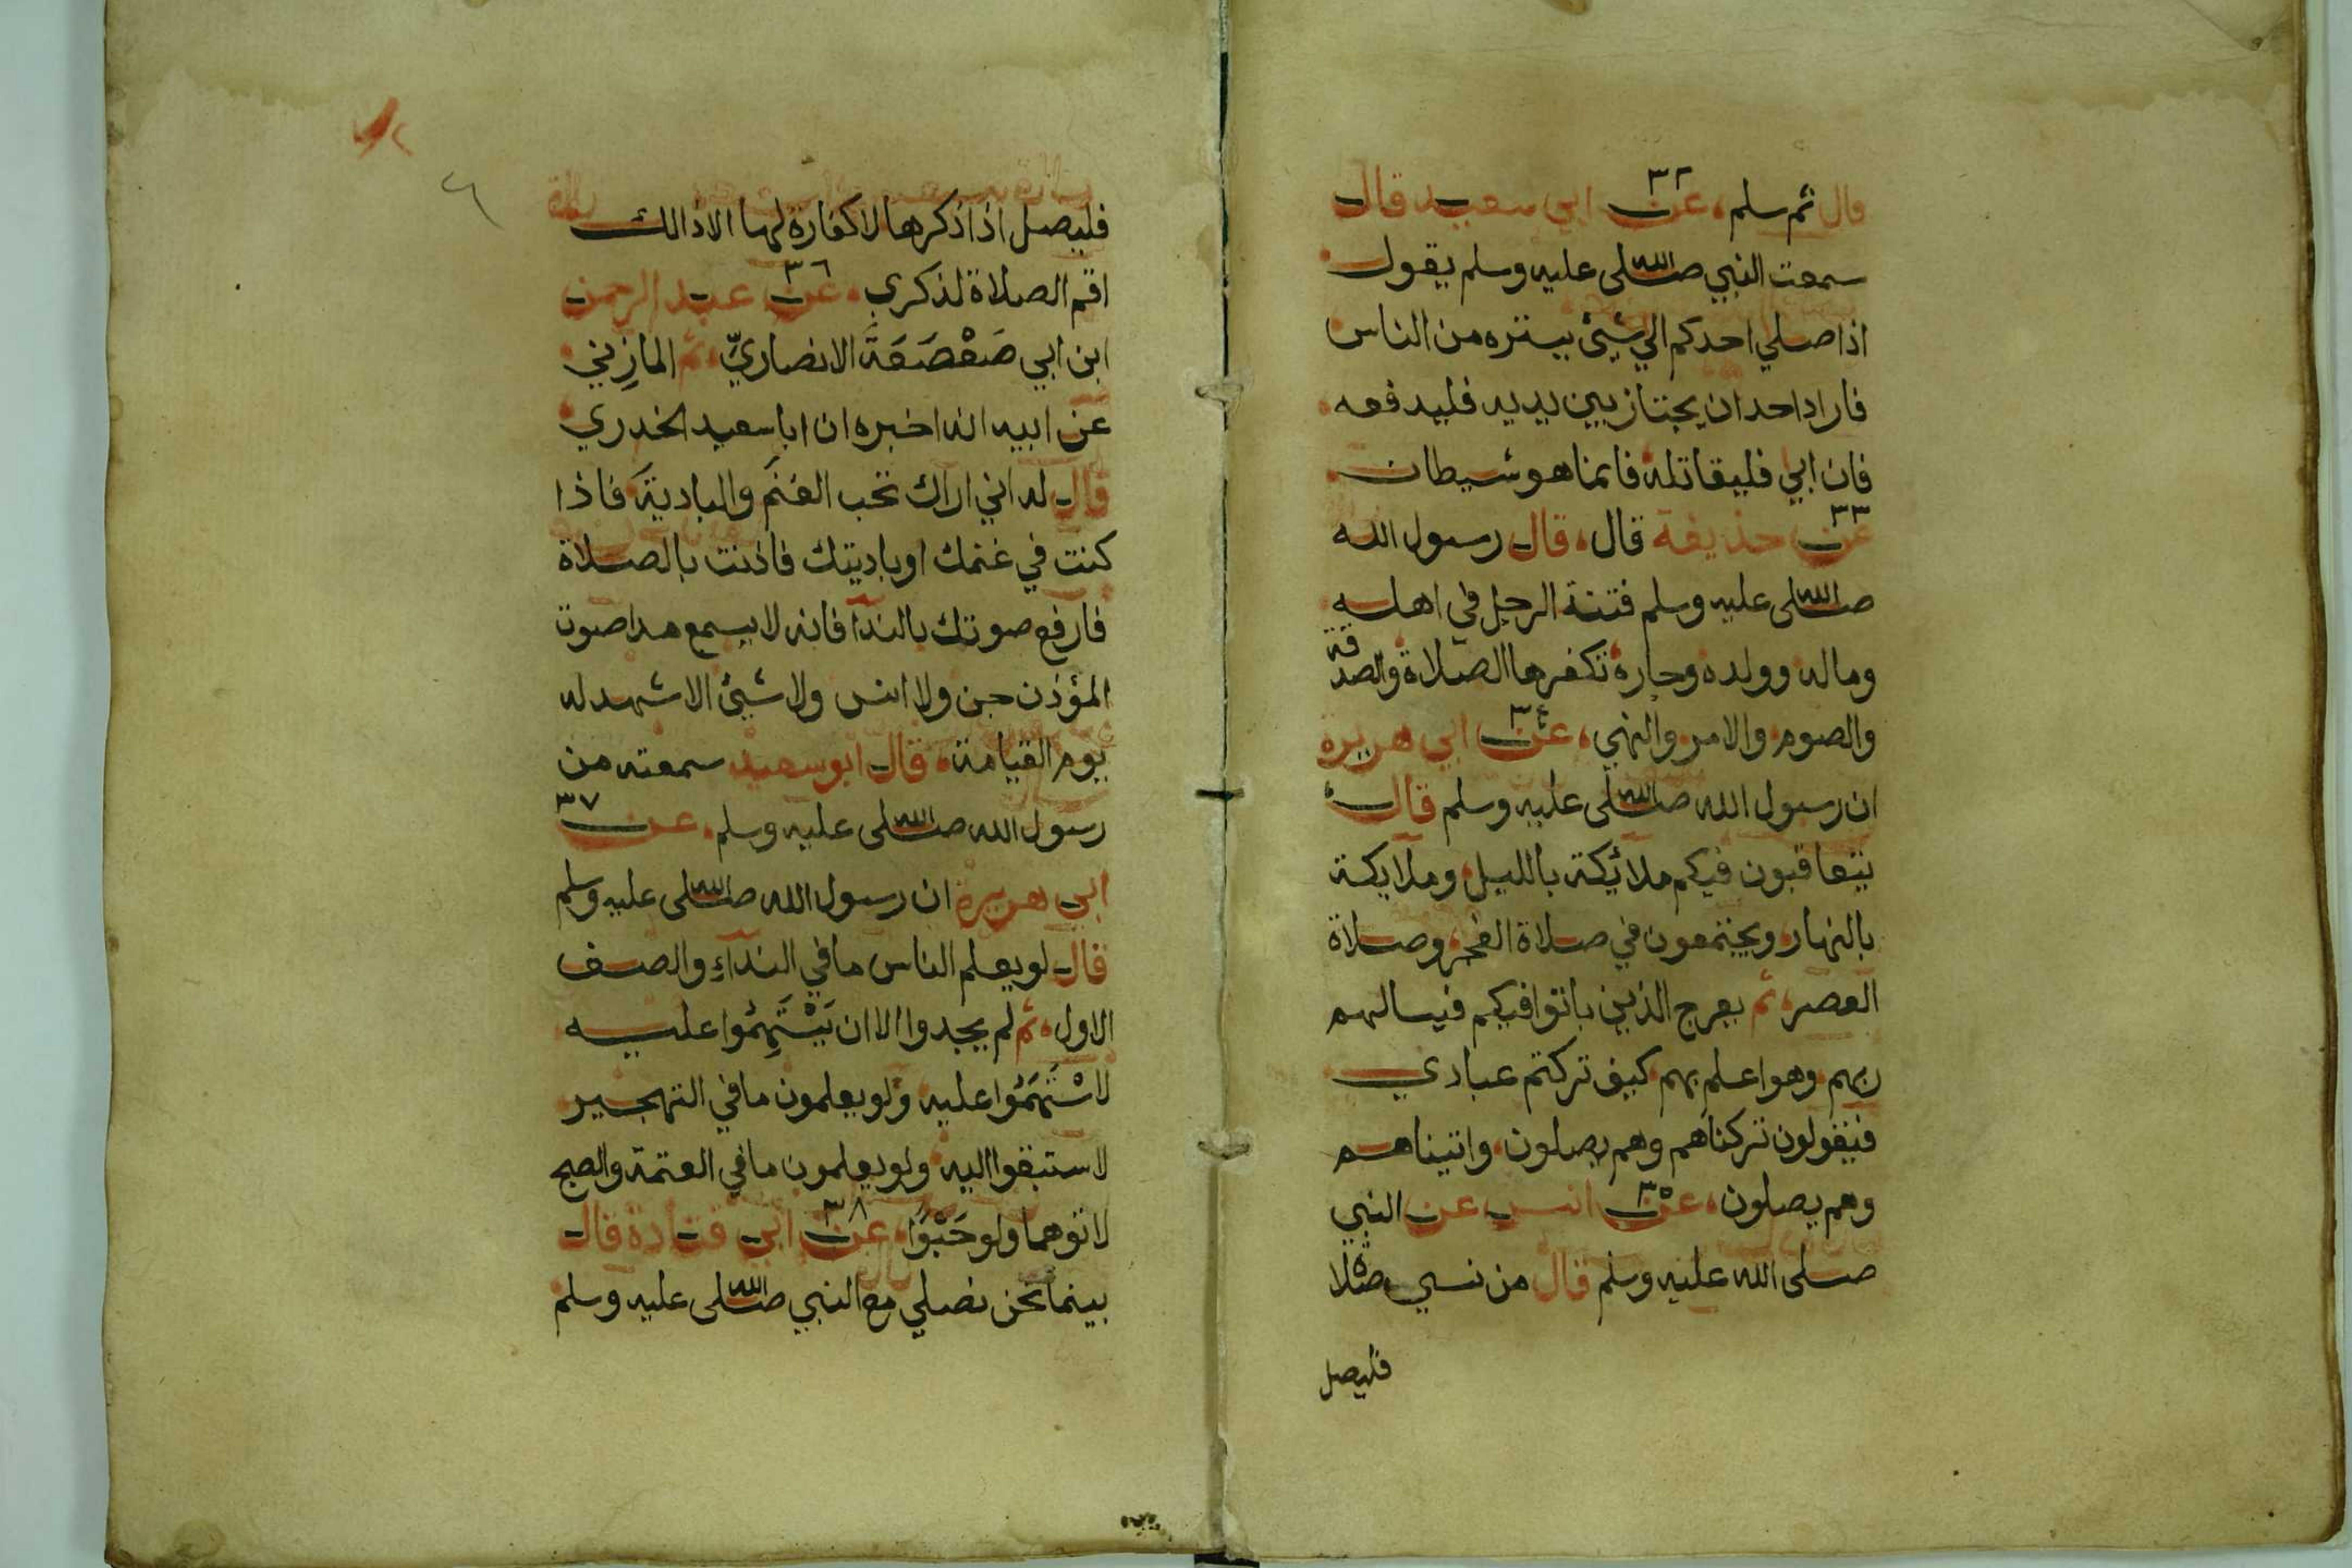 قال ثم سلم، عن ٣٢ ابي سعيد قال
سمعت النبي صلى الله عليه وسلم يقول
اذا صلي احدكم الي شيئ يستره من الناس
فاراد احد ان يجتاز بين يديه فليدفعه
فان ابي فليقاتله فانما هو شيطان
عن ٣٣ حذيفة قال، قال رسول الله
صلى الله عليه وسلم فتنة الرجل في اهله
وماله وولده وجاره تكفرها الصلاة والصدقة
والصوم والامر والنهي، عن ٣٤ ابي هريرة
ان رسول الله صلى الله عليه وسلم قال
يتعاقبون فيكم ملائكة بالليل وملايكة
بالنهار ويجتمعون في صلاة الفجر وصلاة
العصر، ثم يعرج الذين باتوا فيكم فيسالهم
ربهم وهو اعلم بهم كيف تركتم عبادي
فيقولون تركناهم وهم يصلون واتيناهم
وهم يصلون، عن ٣٥ انس عن النبي
صلى الله عليه وسلم قال من نسي صلاة
فليصل
٦
فليصل اذا ذكرها لا كفارة لها الا ذالك
اقم الصلاة لذكري، عن ٣٦ عبد الرحمن
ابن ابي صَعْصَعَةَ الانصاريّ، ثم المازِني
عن ابيه انه اخبره ان ابا سعيد الخدري
قال له اني اراك تحب الغنَم والباديَة فاذا
كنت في غنمك او باديتك فاذنت بالصلاة
فارفع صوتك بالندا فانه لا يسمع مدا صوت
المؤذن جن ولا انس ولا شيئ الا شهد له
يوم القيامة، قال ابو سعيد سمعته من
رسول الله صلى الله عليه وسلم، عن ٣٧
ابي هريرة ان رسول الله صلى الله عليه وسلم
قال لو يعلم الناس ما في النداءِ والصف
الاول، ثم لم يجدوا الا ان يَسْتَهِمُوا عليه
لاسْتَهَمُوا عليه ولو يعلمون ما في التهجير
لاستبقوا اليه ولو يعلمون ما في العتمة والصبح
لاتوهما ولو حَبْوًا، عن ٣٨ ابي قتادة قال
بينما نحن نصلي مع النبي صلى الله عليه وسلم